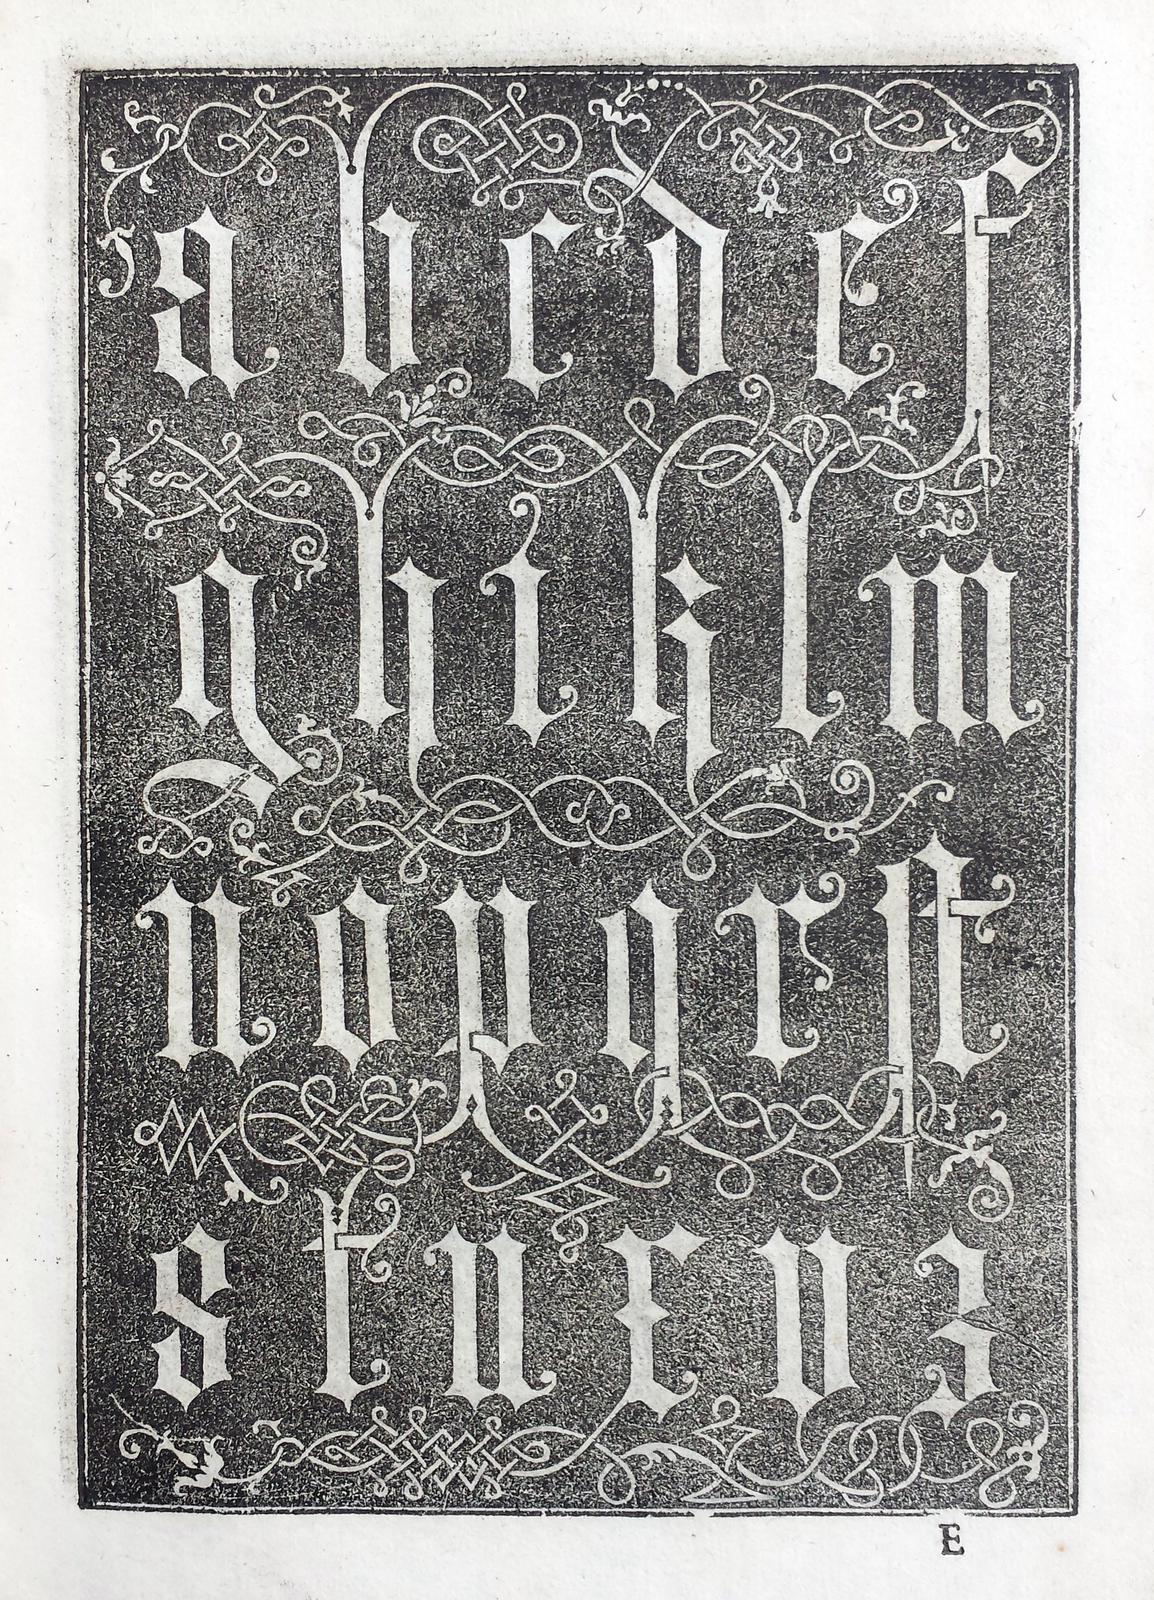 a b c d e f
g h i k l m
n o p q r ſt
s t u x y z
E